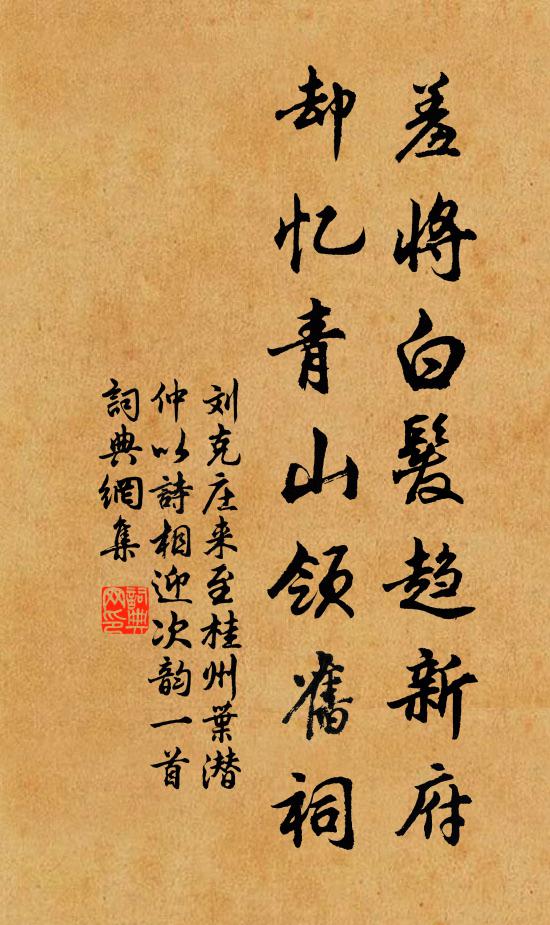 羞将白髮趋新府
却忆青山领舊祠
刘克庄来至桂州葉潜
仲以詩相迎次韵一首
詞典網集
詞典網印